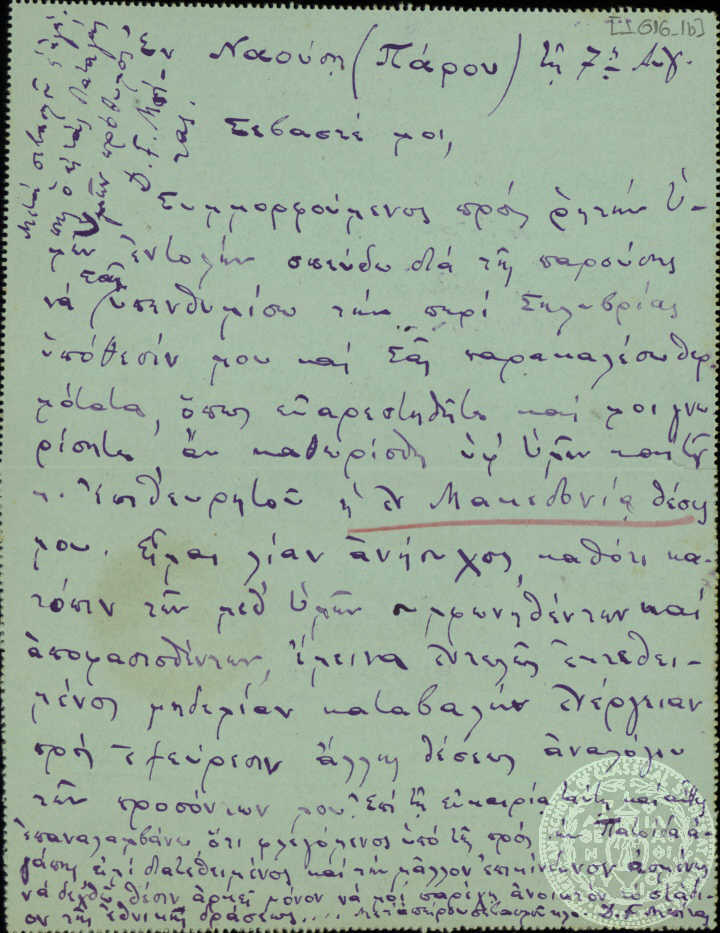 [II 616_1b]
Ἐν Ναούσῃ (Πάρου) τῇ 7ῃ Αὐγ.
Σεβαστέ μοι,
Συμμορφούμενος πρός ρητήν Ὑ-
μῶν ἐντολήν σπεύδω διά τῆς παρούσης
νά Σᾶς ὑπενθυμίσω τήν περί Σηλυβρίας
ὑπόθεσίν μου καί Σᾶς παρακαλέσω θερ-
μότατα, ὅπως εὐαρεστηθῆτε καί μοι γνω
ρίσητε ἄν καθωρίσθη ὑφ' Ὑμῶν καί τοῦ
κ. Ἐπιθεωρητοῦ ἡ ἐν Μακεδονίᾳ θέσις
μου. Εἶμαι λίαν ἀνήσυχος, καθότι κα-
τόπιν τῶν μεθ' Ὑμῶν συμφωνηθέντων καί
ἀποφασισθέντων, ἔμεινα ἐντελῶς ἐκτεθει-
μένος μηδεμίαν καταβαλών ἐνέργειαν
πρός ἐξεύρεσιν ἄλλης θέσεως ἀναλόγου
τῶν προσόντων μου. Ἐπί τῇ εὐκαιρίᾳ ταύτῃ καί αὖθις
ἐπαναλαμβάνω ὅτι φλεγόμενος ὑπό τῆς πρός τήν Πατρίδα ἀ-
γάπης εἰμί διατεθειμένος καί τήν μᾶλλον ἐπικίνδυνον ἀσμένως
νά δεχθῶ θέσιν ἀρκεῖ μόνον νά μοι παρέχῃ ἀνοικτόν τό στάδι-
ον τῆς ἐθνικῆς δράσεως.... Μετά σεβασμοῦ κλπ. Δ. Γ.
Μετά σεβασμοῦ
πρόθυμος
Δ. Γ.